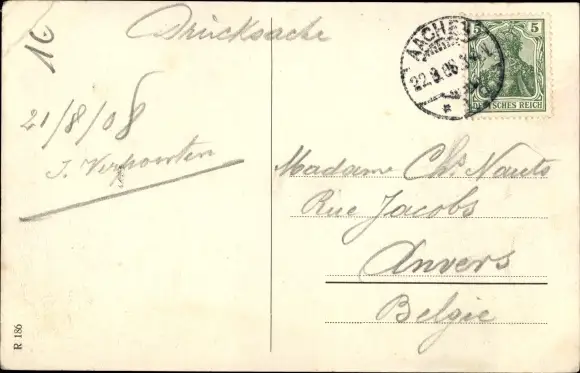 16
Drucksache
AACHEN
22.8.08
5
DEUTSCHES REICH
21/8/08
J. Verpoorten
Madame Chs. Nauts
Rue Jacobs
Anvers
Belgie
R 186